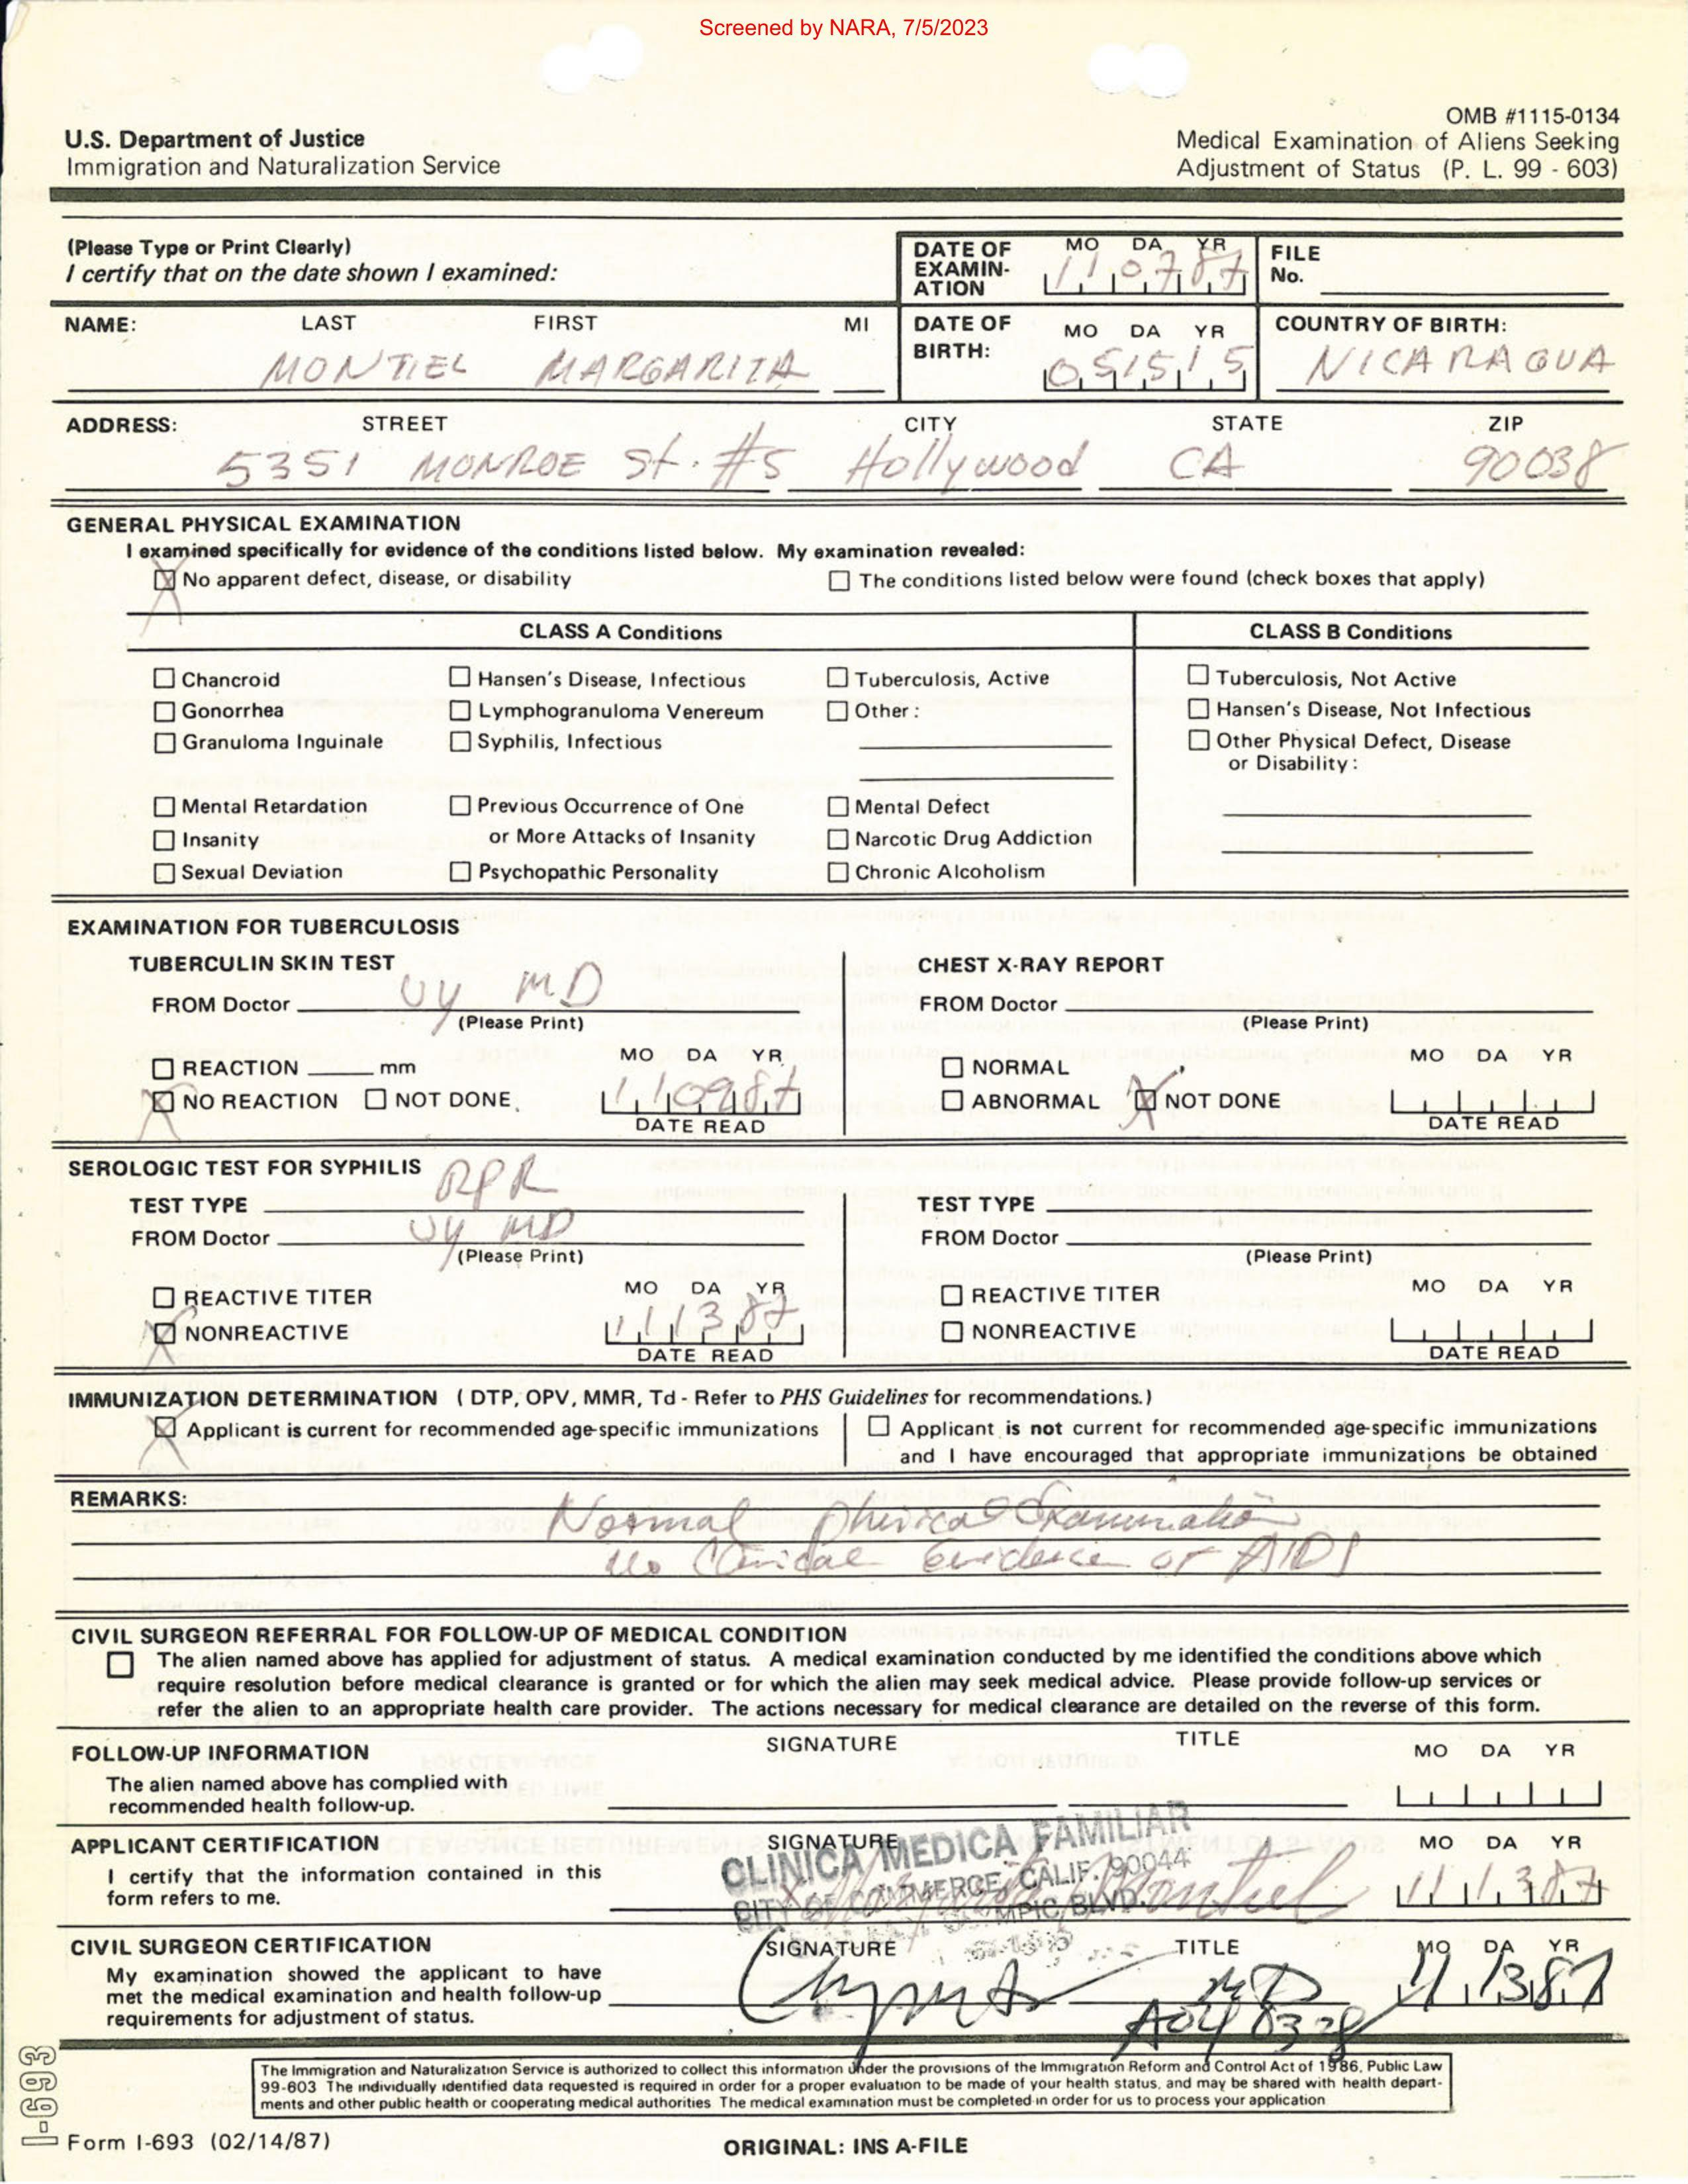 Screened by NARA, 7/5/2023
OMB #1115-0134
U.S. Department of Justice
Immigration and Naturalization Service
Medical Examination of Aliens Seeking
Adjustment of Status (P. L. 99 - 603)
(Please Type or Print Clearly)
I certify that on the date shown I examined:
DATE OF EXAMIN-ATION MO DA YR 110787
FILE No.
NAME: LAST FIRST MI
MONTIEL MARGARITA
DATE OF BIRTH: MO DA YR 051515
COUNTRY OF BIRTH:
NICARAGUA
ADDRESS: STREET CITY STATE ZIP
5351 MONROE St. #5 Hollywood CA 90038
GENERAL PHYSICAL EXAMINATION
I examined specifically for evidence of the conditions listed below. My examination revealed:
X No apparent defect, disease, or disability
The conditions listed below were found (check boxes that apply)
CLASS A Conditions CLASS B Conditions
Chancroid Hansen's Disease, Infectious Tuberculosis, Active Tuberculosis, Not Active
Gonorrhea Lymphogranuloma Venereum Other: Hansen's Disease, Not Infectious
Granuloma Inguinale Syphilis, Infectious Other Physical Defect, Disease
or Disability:
Mental Retardation Previous Occurrence of One Mental Defect
Insanity or More Attacks of Insanity Narcotic Drug Addiction
Sexual Deviation Psychopathic Personality Chronic Alcoholism
EXAMINATION FOR TUBERCULOSIS
TUBERCULIN SKIN TEST
FROM Doctor Uy MD
(Please Print)
MO DA YR
REACTION mm
X NO REACTION NOT DONE 110987
DATE READ
CHEST X-RAY REPORT
FROM Doctor
(Please Print)
MO DA YR
NORMAL
ABNORMAL X NOT DONE
DATE READ
SEROLOGIC TEST FOR SYPHILIS
TEST TYPE RPR
FROM Doctor Uy MD
(Please Print)
MO DA YR
REACTIVE TITER
X NONREACTIVE 111387
DATE READ
TEST TYPE
FROM Doctor
(Please Print)
MO DA YR
REACTIVE TITER
NONREACTIVE
DATE READ
IMMUNIZATION DETERMINATION ( DTP, OPV, MMR, Td - Refer to PHS Guidelines for recommendations.)
X Applicant is current for recommended age-specific immunizations
Applicant is not current for recommended age-specific immunizations
and I have encouraged that appropriate immunizations be obtained
REMARKS:
Normal Phisical Examination
No Clinical Evidence of AIDS
CIVIL SURGEON REFERRAL FOR FOLLOW-UP OF MEDICAL CONDITION
The alien named above has applied for adjustment of status. A medical examination conducted by me identified the conditions above which
require resolution before medical clearance is granted or for which the alien may seek medical advice. Please provide follow-up services or
refer the alien to an appropriate health care provider. The actions necessary for medical clearance are detailed on the reverse of this form.
FOLLOW-UP INFORMATION SIGNATURE TITLE MO DA YR
The alien named above has complied with
recommended health follow-up.
APPLICANT CERTIFICATION SIGNATURE MO DA YR
I certify that the information contained in this
form refers to me.
CLINICA MEDICA FAMILIAR
CITY OF COMMERCE, CALIF. 90044
BLVD.
Montiel 111387
CIVIL SURGEON CERTIFICATION SIGNATURE TITLE MO DA YR
My examination showed the applicant to have
met the medical examination and health follow-up
requirements for adjustment of status.
MD 111387
The Immigration and Naturalization Service is authorized to collect this information under the provisions of the Immigration Reform and Control Act of 1986, Public Law
99-603 The individually identified data requested is required in order for a proper evaluation to be made of your health status, and may be shared with health depart-
ments and other public health or cooperating medical authorities The medical examination must be completed in order for us to process your application
I-693
Form I-693 (02/14/87)
ORIGINAL: INS A-FILE